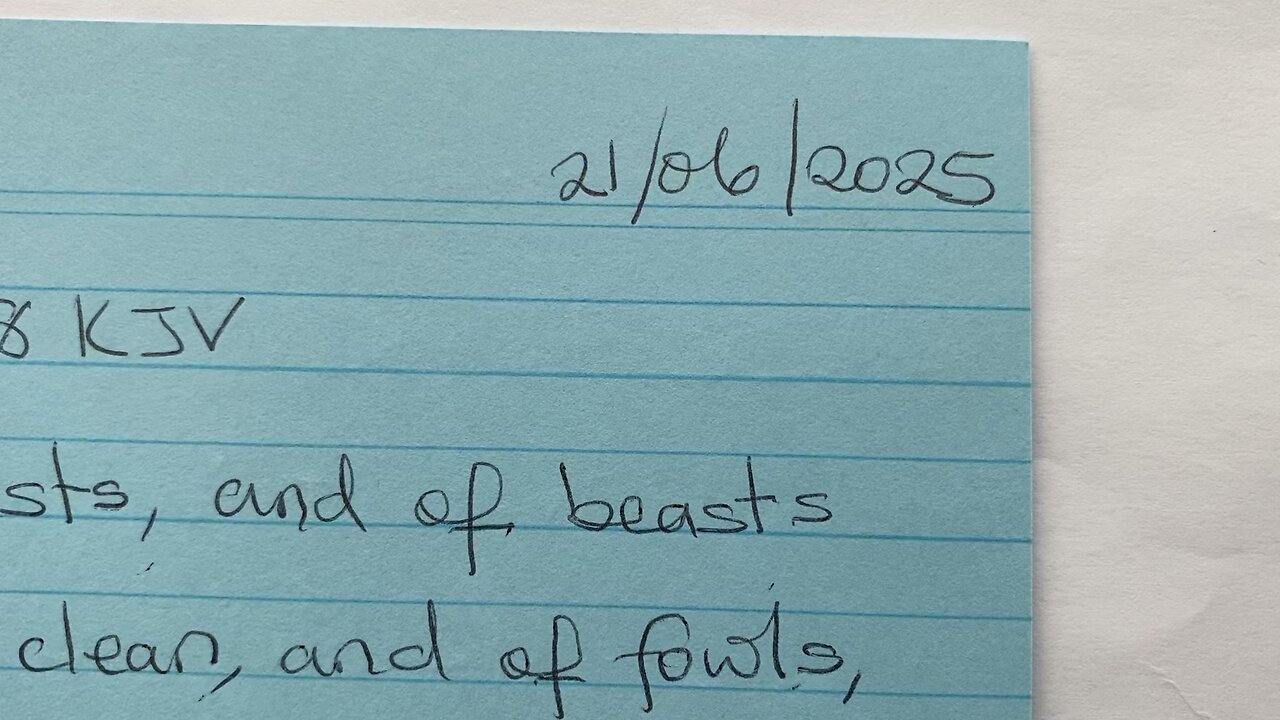 21/06/2025
8 KJV
sts, and of beasts
clean, and of fowls,